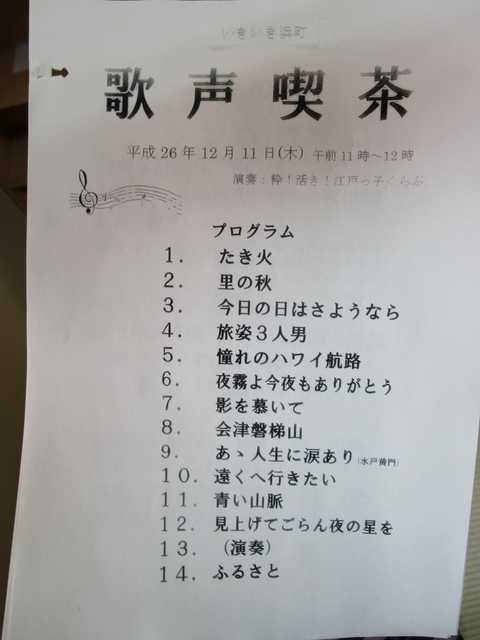 いきいき浜町
歌声喫茶
平成26年12月11日(木) 午前11時～12時
演奏：粋！活き！江戸っ子くらぶ
プログラム
1． たき火
2． 里の秋
3． 今日の日はさようなら
4． 旅姿3人男
5．憧れのハワイ航路
6． 夜霧よ今夜もありがとう
7． 影を慕いて
8． 会津磐梯山
9． あゝ人生に涙あり(水戸黄門)
10．遠くへ行きたい
11．青い山脈
12．見上げてごらん夜の星を
13．（演奏）
14．ふるさと